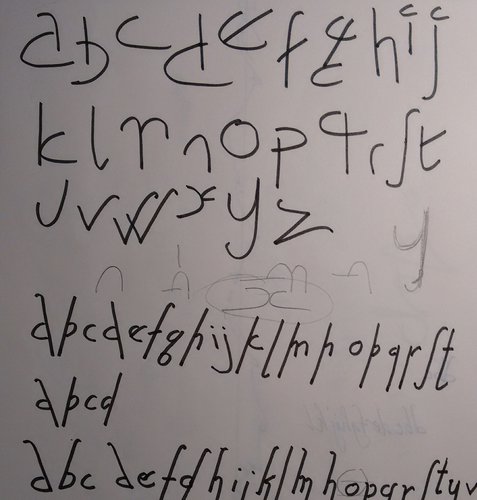 a b c d e f g h i j
k l m n o p q r ſ t
u v w x y z y
n h x m n
a b c d e f g h i j k l m n o p q r ſ t
a b c d
a b c d e f g h i j k l m n o p q r ſ t u v